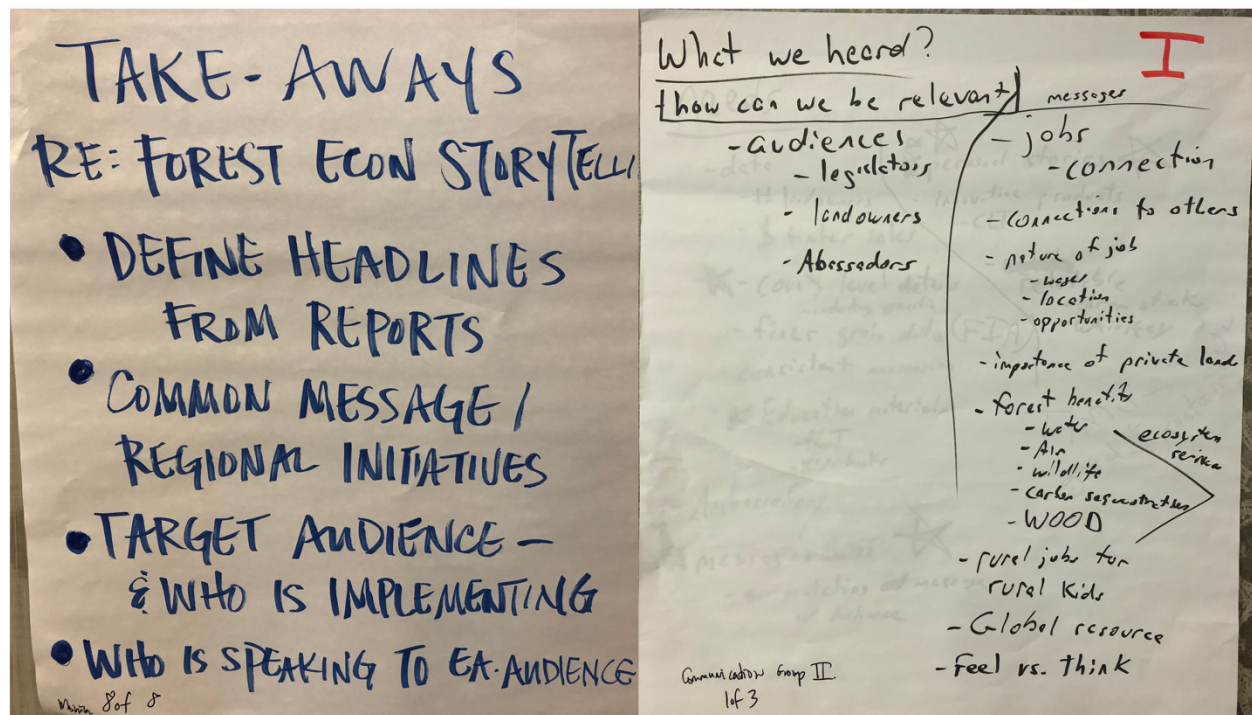 TAKE-AWAYS
RE: FOREST ECON STORYTELLI
• DEFINE HEADLINES
FROM REPORTS
• COMMON MESSAGE /
REGIONAL INITIATIVES
• TARGET AUDIENCE -
& WHO IS IMPLEMENTING
• WHO IS SPEAKING TO EA. AUDIENCE
8 of 8
What we heard?
I
how can we be relevant
- audiences
- legislators
- landowners
- Abassadors
Communication Group II
1 of 3
messages
- jobs
- connection
- connections to others
- nature of job
- wages
- location
- opportunities
- importance of private land
- forest benefits
- water
- Air
- wildlife
- carbon sequestration
- WOOD
ecosystem
services
- rural jobs for
rural kids
- Global resource
- Feel vs. think